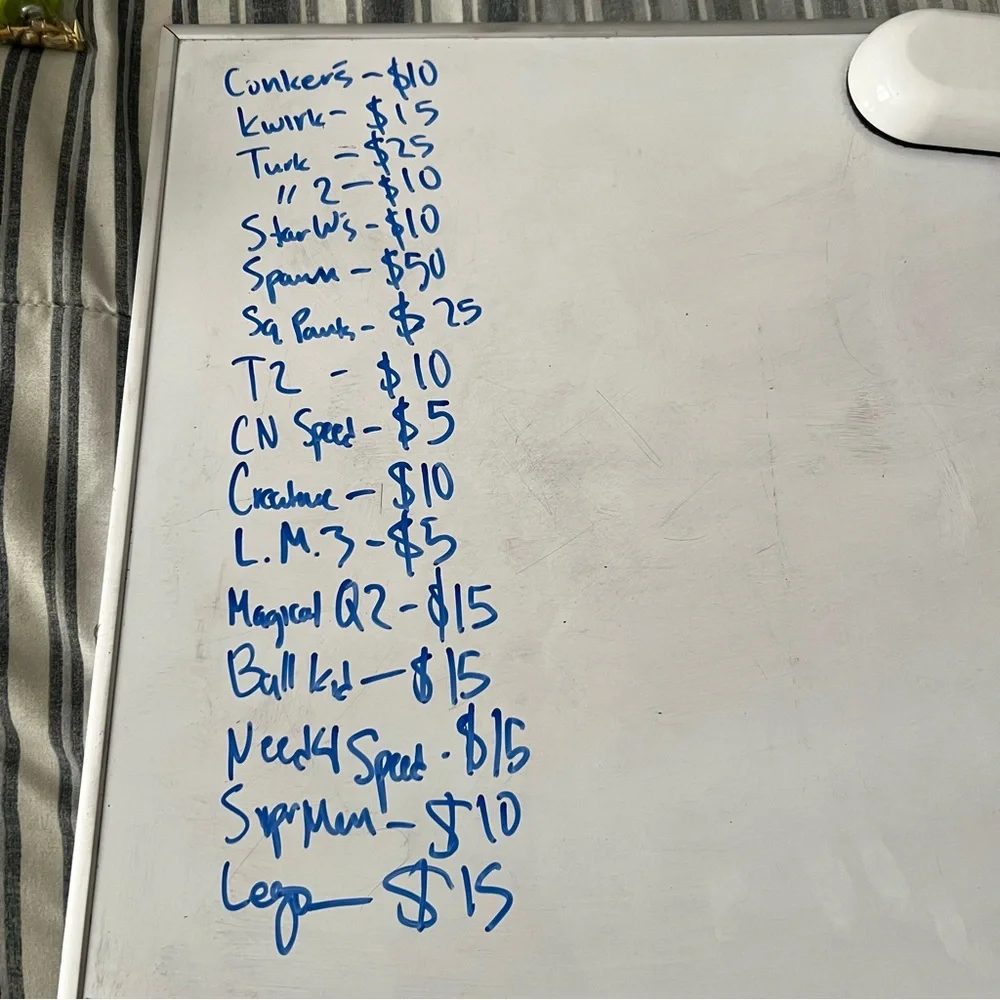 Conker's - $10
Kwirk - $15
Turk - $25
" 2 - $10
Star W's - $10
Spawn - $50
Sq Pants - $25
T2 - $10
CN Speed - $5
Creature - $10
L.M.3 - $5
Magical Q2 - $15
Ball Kid - $15
Need 4 Speed - $15
SuprMan - $10
Lego - $15